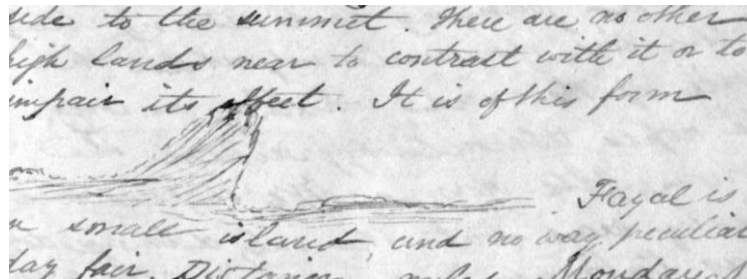 side to the summet. There are no other
high lands near to contrast with it or to
impair its effect. It is of this form
Fayal is
a small island, and no way peculiar
day fair. Distance miles. Monday